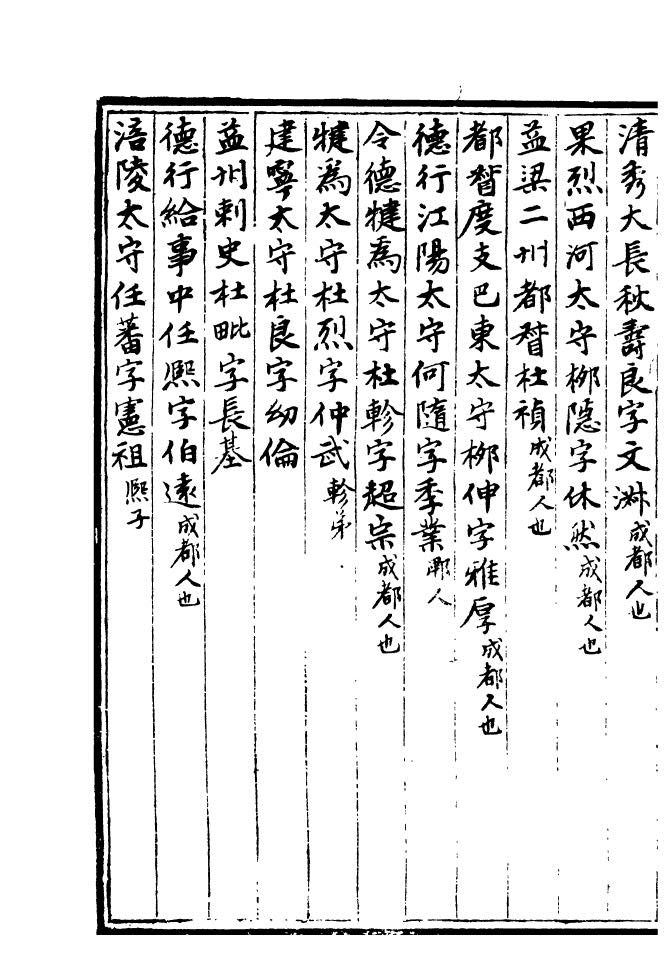 清秀大長秋壽良字文淑成都人也
果烈西河太守柳隱字休然成都人也
益梁二州都督杜禎成都人也
都督度支巴東太守柳伸字雅厚成都人也
德行江陽太守何隨字季業郫人
令德犍為太守杜軫字超宗成都人也
犍為太守杜烈字仲武軫弟
建寧太守杜良字幼倫
益州刺史杜毗字長基
德行給事中任熈字伯遠成都人也
涪陵太守任蕃字憲祖熈子